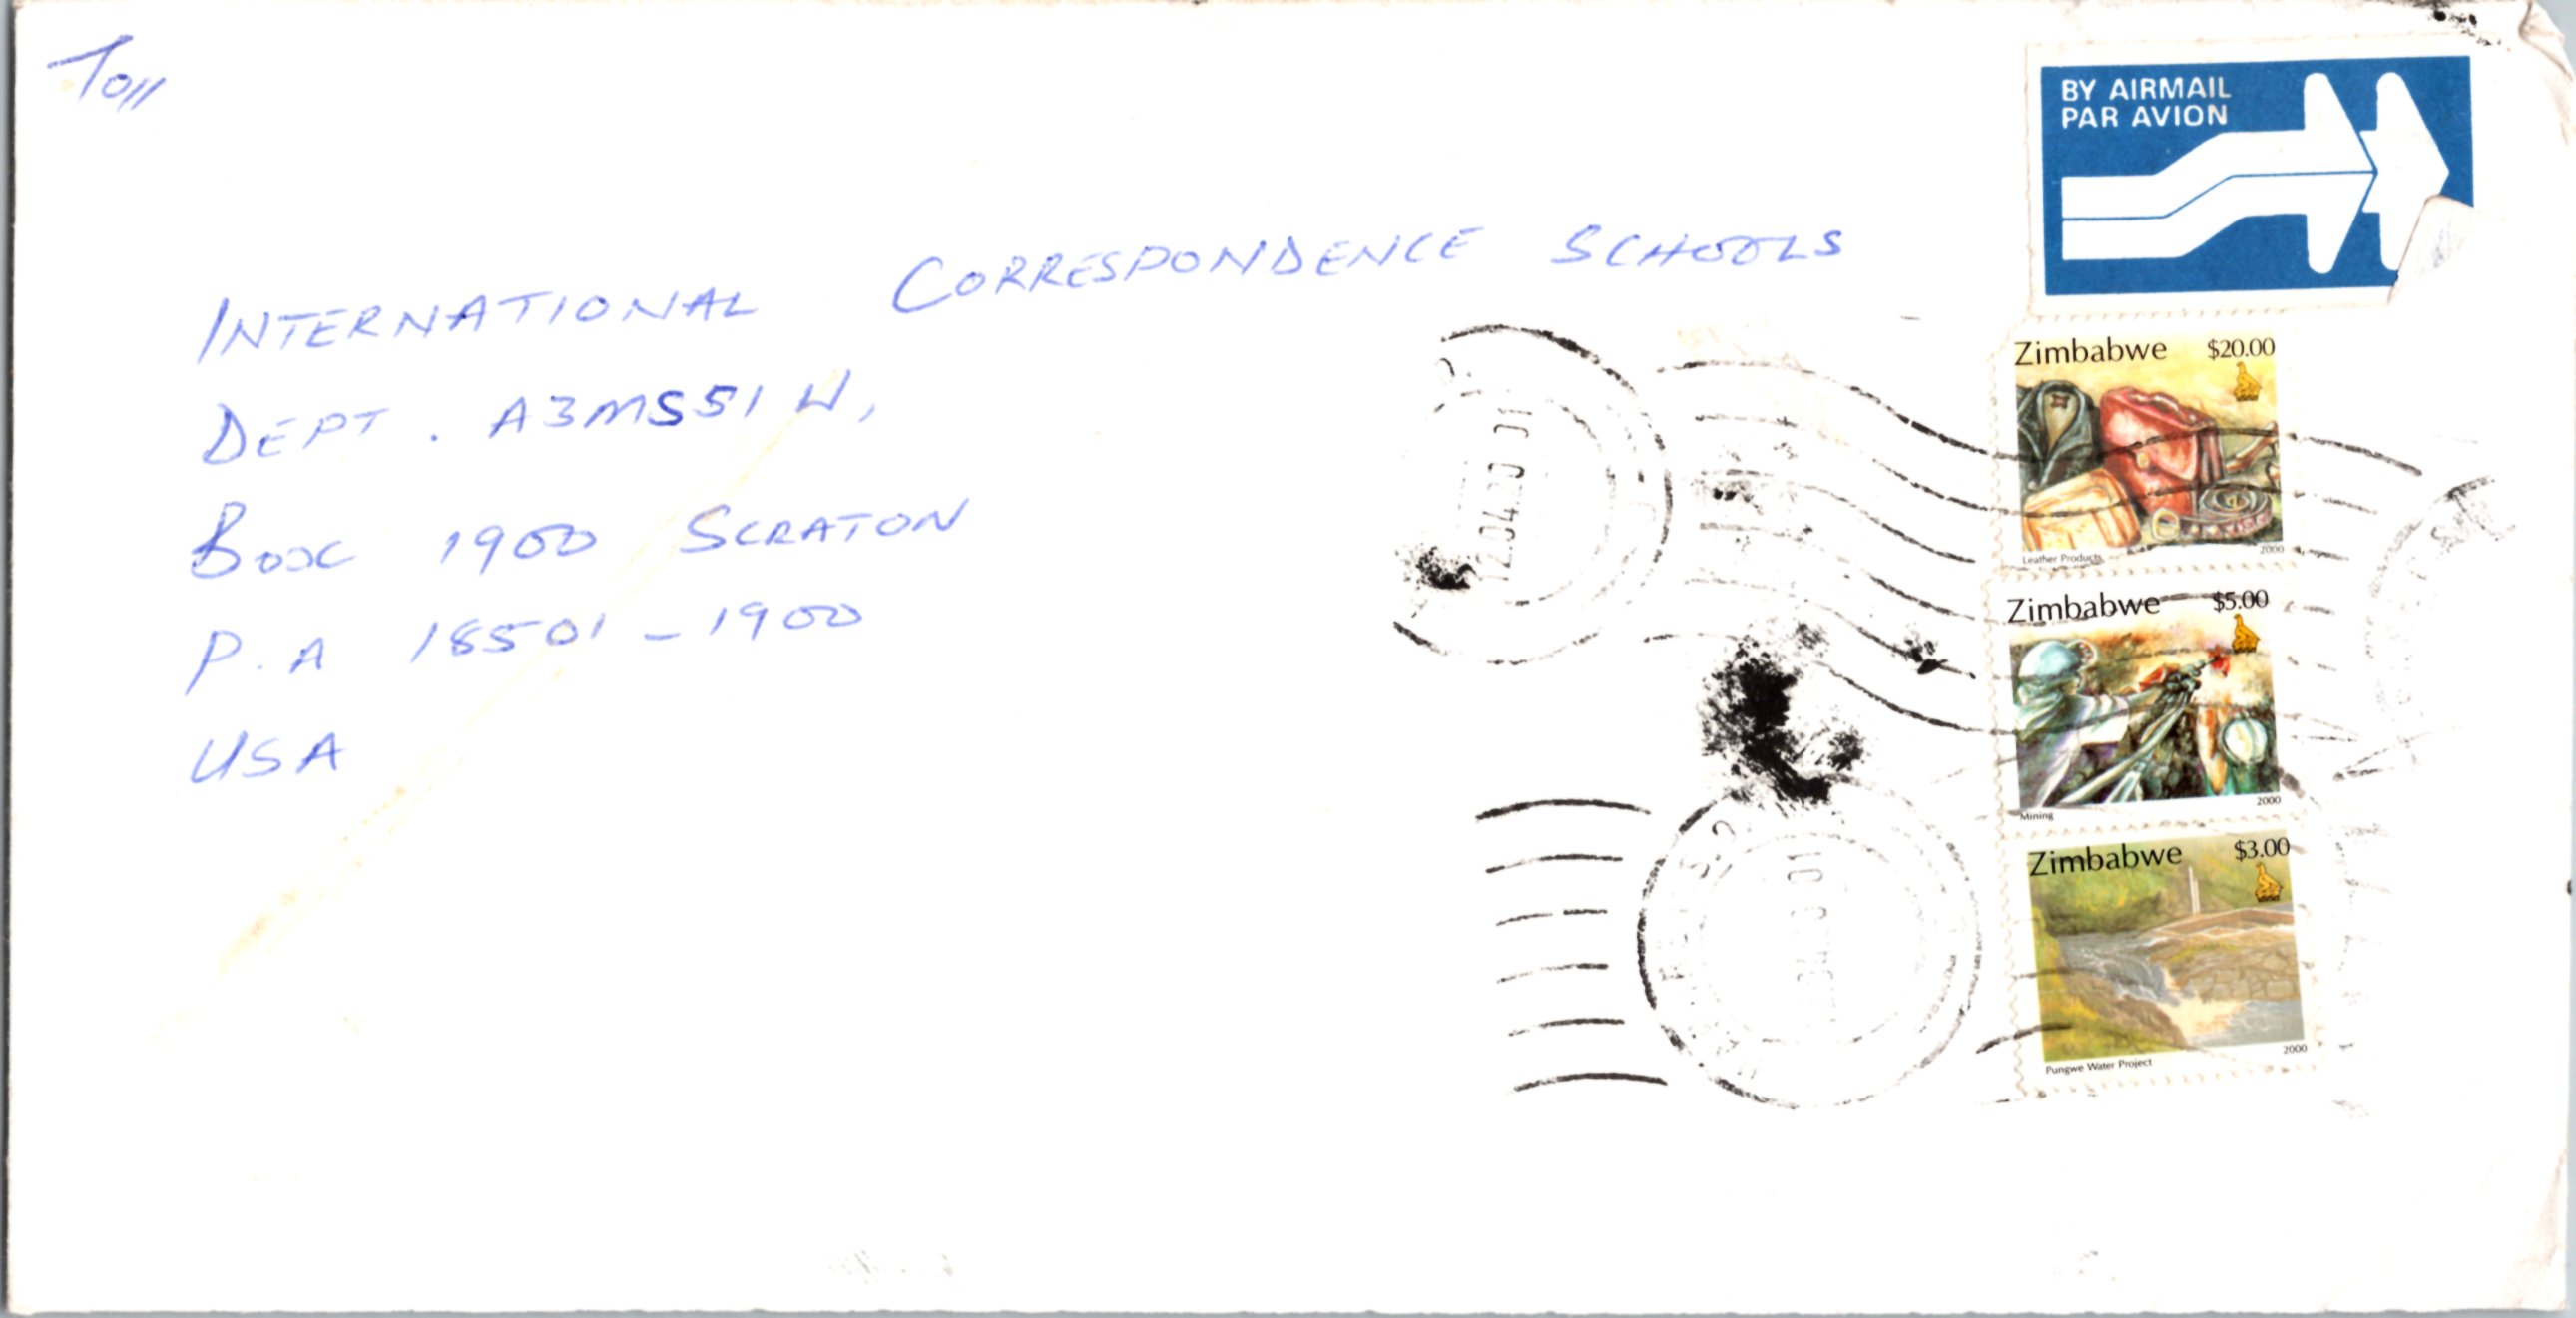 To//
BY AIRMAIL
PAR AVION
INTERNATIONAL CORRESPONDENCE SCHOOLS
DEPT. A3MS51W,
BOX 1900 SCRATON
P.A 18501-1900
USA
Zimbabwe $20.00
Leather Products 2000
Zimbabwe $5.00
Mining 2000
Zimbabwe $3.00
Pungwe Water Project 2000